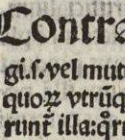 Contra
gi.ſ.vel mut
quoꝝ vtrūq
runt̄ illa:qr̄